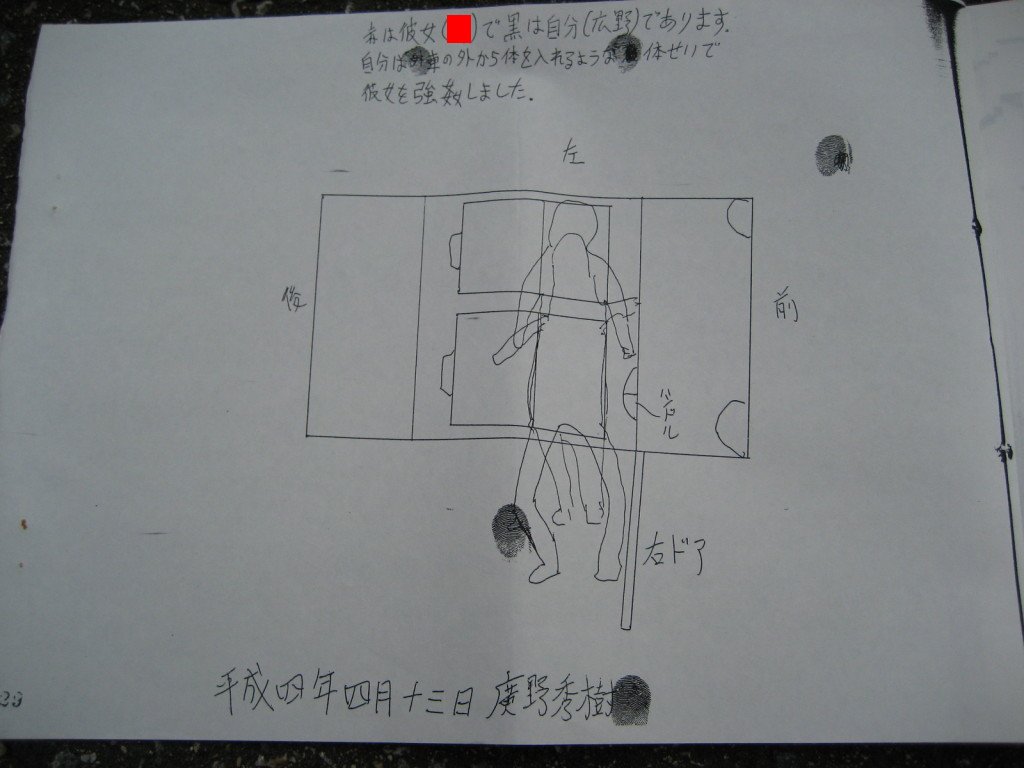 赤は彼女( )で黒は自分(広野)であります。
自分は車の外から体を入れるような体せいで
彼女を強姦しました。
左
後
前
ハンドル
右ドア
平成四年四月十三日 廣野秀樹
29